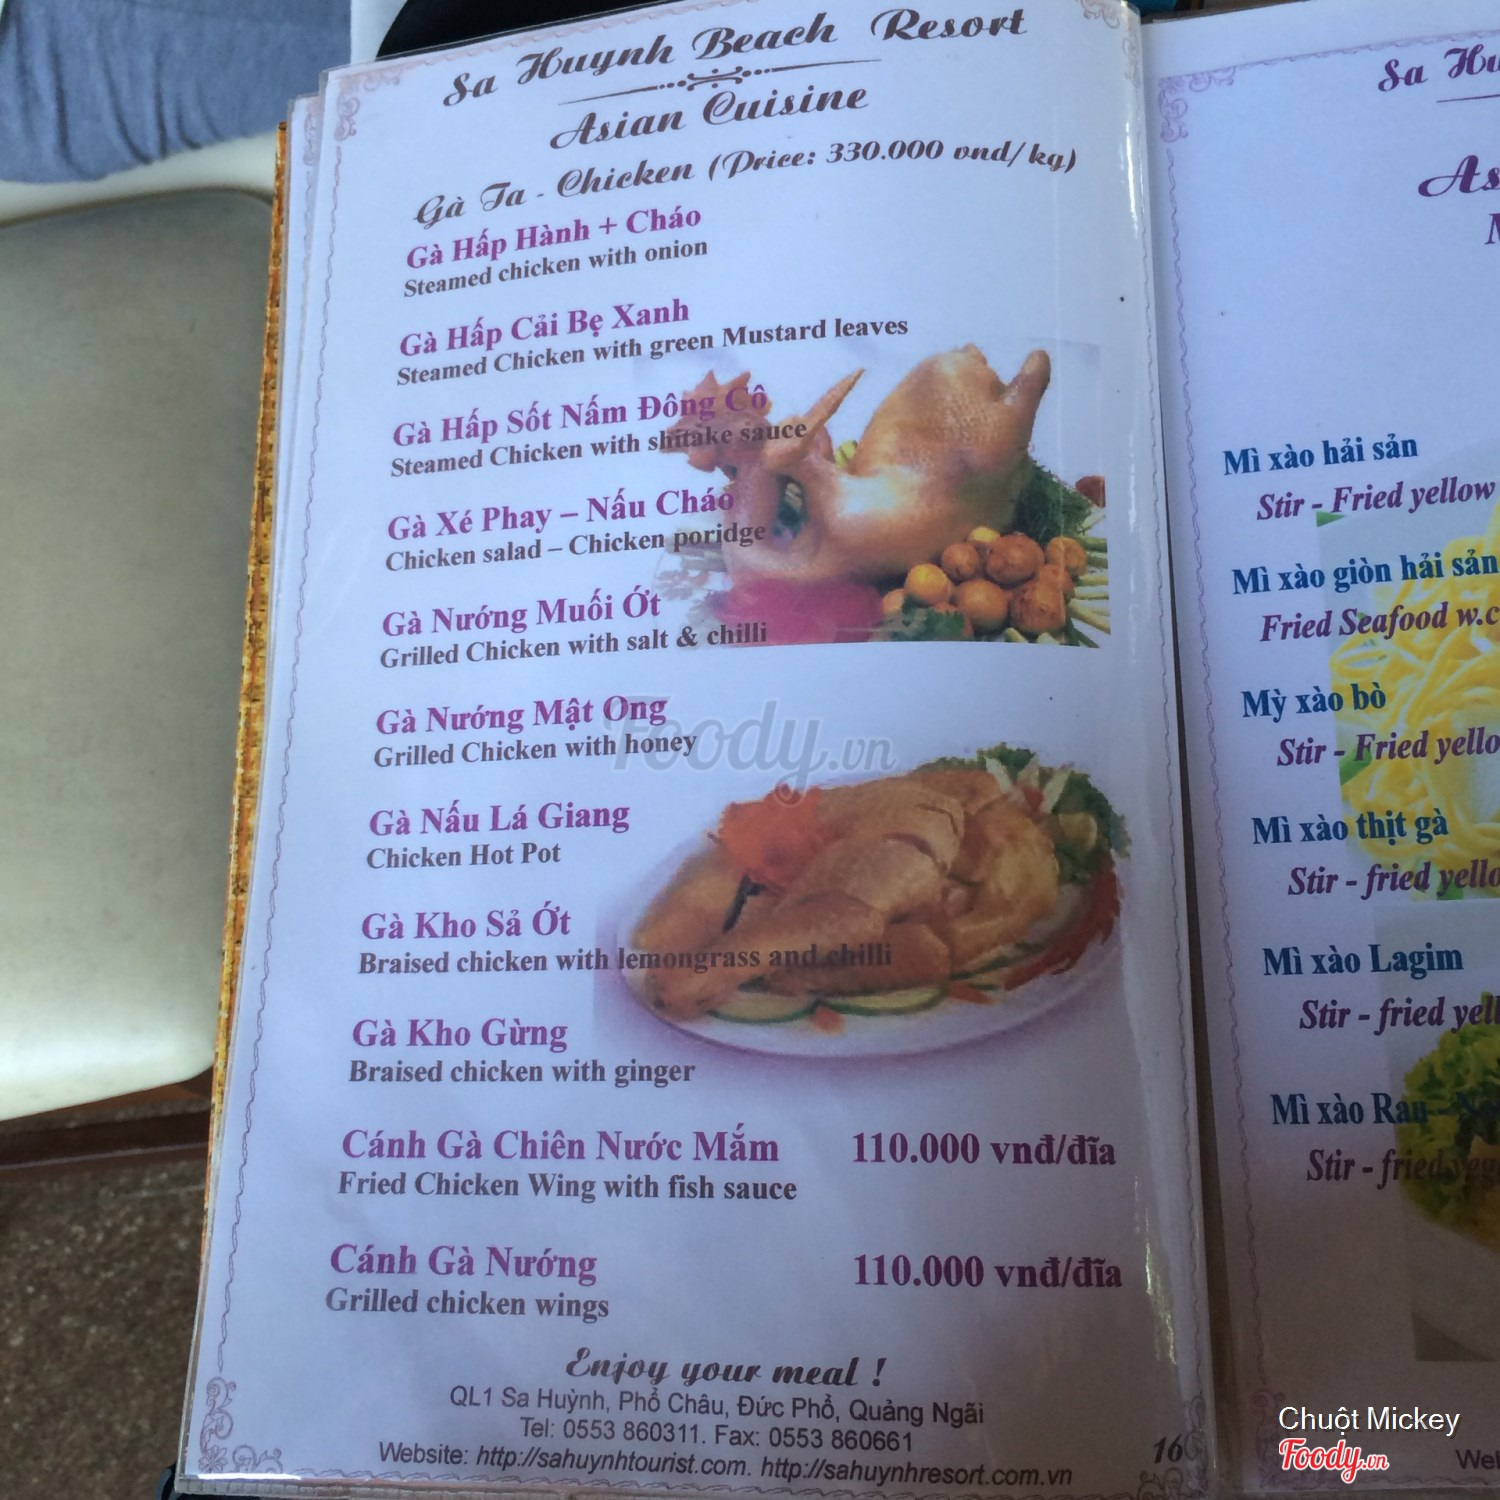 Sa Huynh Beach Resort
Asian Cuisine
Gà Ta - Chicken (Price: 330.000 vnd/kg)
Gà Hấp Hành + Cháo
Steamed chicken with onion
Gà Hấp Cải Bẹ Xanh
Steamed Chicken with green Mustard leaves
Gà Hấp Sốt Nấm Đông Cô
Steamed Chicken with shitake sauce
Gà Xé Phay – Nấu Cháo
Chicken salad – Chicken poridge
Gà Nướng Muối Ớt
Grilled Chicken with salt & chilli
Gà Nướng Mật Ong
Grilled Chicken with honey
Foody.vn
Gà Nấu Lá Giang
Chicken Hot Pot
Gà Kho Sả Ớt
Braised chicken with lemongrass and chilli
Gà Kho Gừng
Braised chicken with ginger
Cánh Gà Chiên Nước Mắm 110.000 vnđ/đĩa
Fried Chicken Wing with fish sauce
Cánh Gà Nướng 110.000 vnđ/đĩa
Grilled chicken wings
Enjoy your meal !
QL1 Sa Huỳnh, Phổ Châu, Đức Phổ, Quảng Ngãi
Tel: 0553 860311. Fax: 0553 860661
Website: http://sahuynhtourist.com. http://sahuynhresort.com.vn
16
Sa
Mì xào hải sản
Stir - Fried yellow
Mì xào giòn hải sản
Fried Seafood w.c
Mỳ xào bò
Stir - Fried
Mì xào thịt gà
Stir - fried
Mì xào Lagim
Stir - fried
Mì xào Rau
Stir - fried
Chuột Mickey
Foody.vn